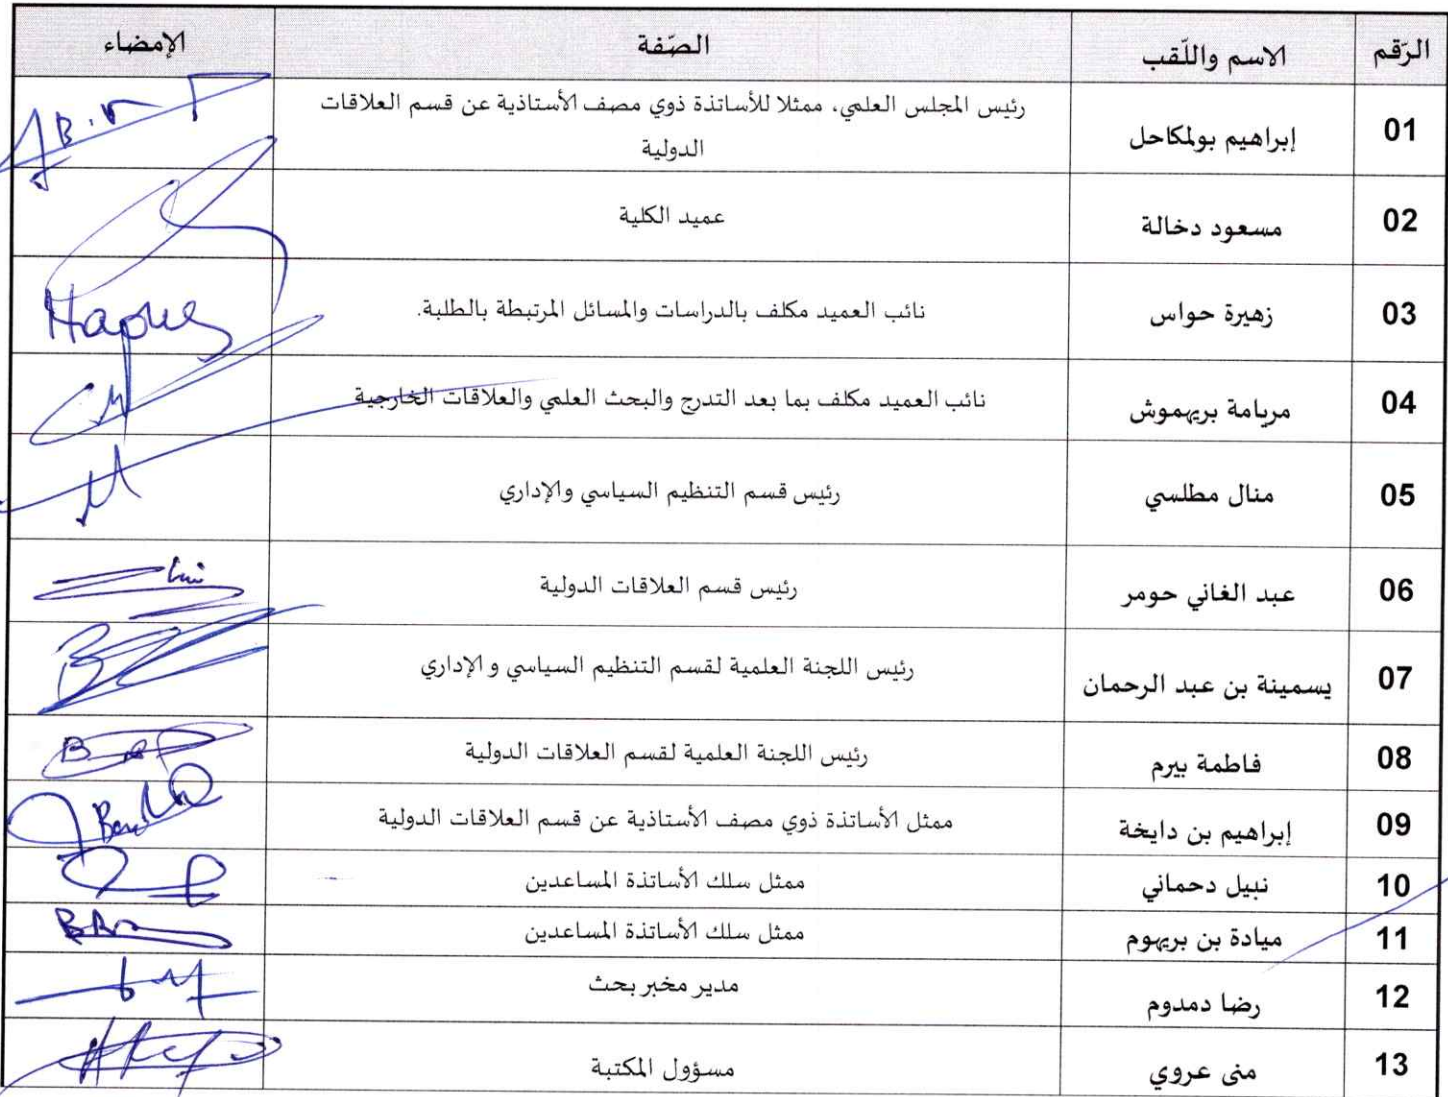 الرّقم الاسم واللّقب الصّفة الإمضاء
01 إبراهيم بولمكاحل رئيس المجلس العلمي، ممثلا للأساتذة ذوي مصف الأستاذية عن قسم العلاقات
الدولية
02 مسعود دخالة عميد الكلية
03 زهيرة حواس نائب العميد مكلف بالدراسات والمسائل المرتبطة بالطلبة.
04 مريامة بريهموش نائب العميد مكلف بما بعد التدرج والبحث العلمي والعلاقات الخارجية
05 منال مطلسي رئيس قسم التنظيم السياسي والإداري
06 عبد الغاني حومر رئيس قسم العلاقات الدولية
07 يسمينة بن عبد الرحمان رئيس اللجنة العلمية لقسم التنظيم السياسي و الإداري
08 فاطمة بيرم رئيس اللجنة العلمية لقسم العلاقات الدولية
09 إبراهيم بن دايخة ممثل الأساتذة ذوي مصف الأستاذية عن قسم العلاقات الدولية
10 نبيل دحماني ممثل سلك الأساتذة المساعدين
11 ميادة بن بريهوم ممثل سلك الأساتذة المساعدين
12 رضا دمدوم مدير مخبر بحث
13 منى عروي مسؤول المكتبة